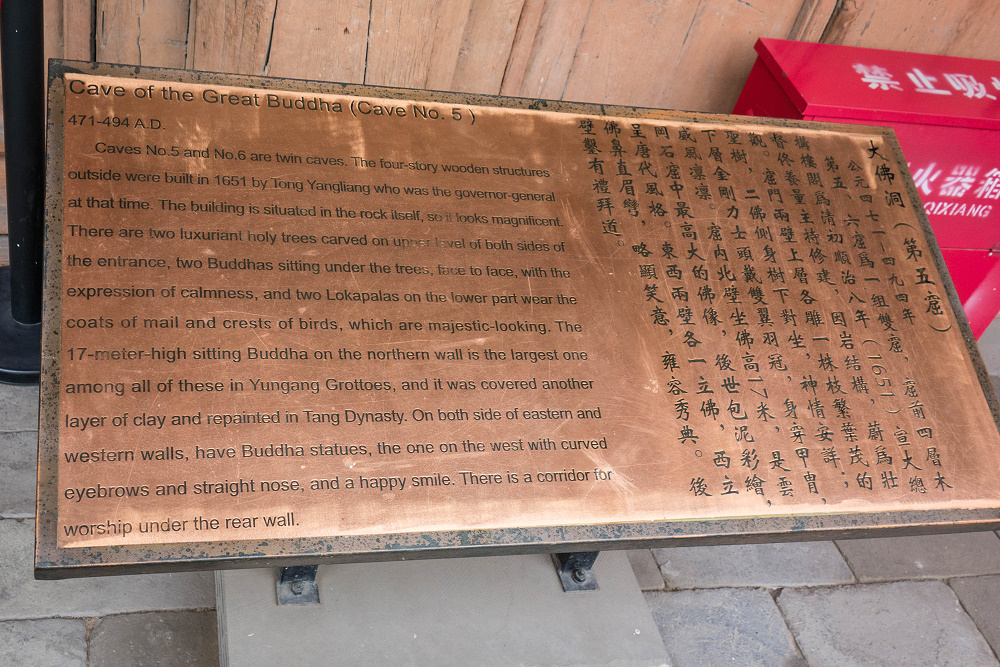 Cave of the Great Buddha (Cave No. 5 )
471-494 A.D.
Caves No.5 and No.6 are twin caves. The four-story wooden structures
outside were built in 1651 by Tong Yangliang who was the governor-general
at that time. The building is situated in the rock itself, so it looks magnificent.
There are two luxuriant holy trees carved on upper level of both sides of
the entrance, two Buddhas sitting under the trees, face to face, with the
expression of calmness, and two Lokapalas on the lower part wear the
coats of mail and crests of birds, which are majestic-looking. The
17-meter-high sitting Buddha on the northern wall is the largest one
among all of these in Yungang Grottoes, and it was covered another
layer of clay and repainted in Tang Dynasty. On both side of eastern and
western walls, have Buddha statues, the one on the west with curved
eyebrows and straight nose, and a happy smile. There is a corridor for
worship under the rear wall.
大佛洞（第五窟）
公元四七一－四九四年
第五、六窟為一組雙窟，窟前四層木
構樓閣為清初順治八年（1651）宣大總
督佟養量主持修建，因岩結構，蔚為壯
觀。窟門兩壁上層各雕一株枝繁葉茂的
聖樹，二佛側身樹下對坐，神情安詳；
下層金剛力士頭戴雙翼羽冠，身穿甲冑，
威風凜凜。窟內北壁坐佛高17米，是雲
岡石窟中最高大的佛像，後世包泥彩繪，
呈唐代風格。東西兩壁各一立佛，西立
佛鼻直眉彎，略顯笑意，雍容秀典。後
壁鑿有禮拜道。
禁止吸
火器箱
QIXIANG